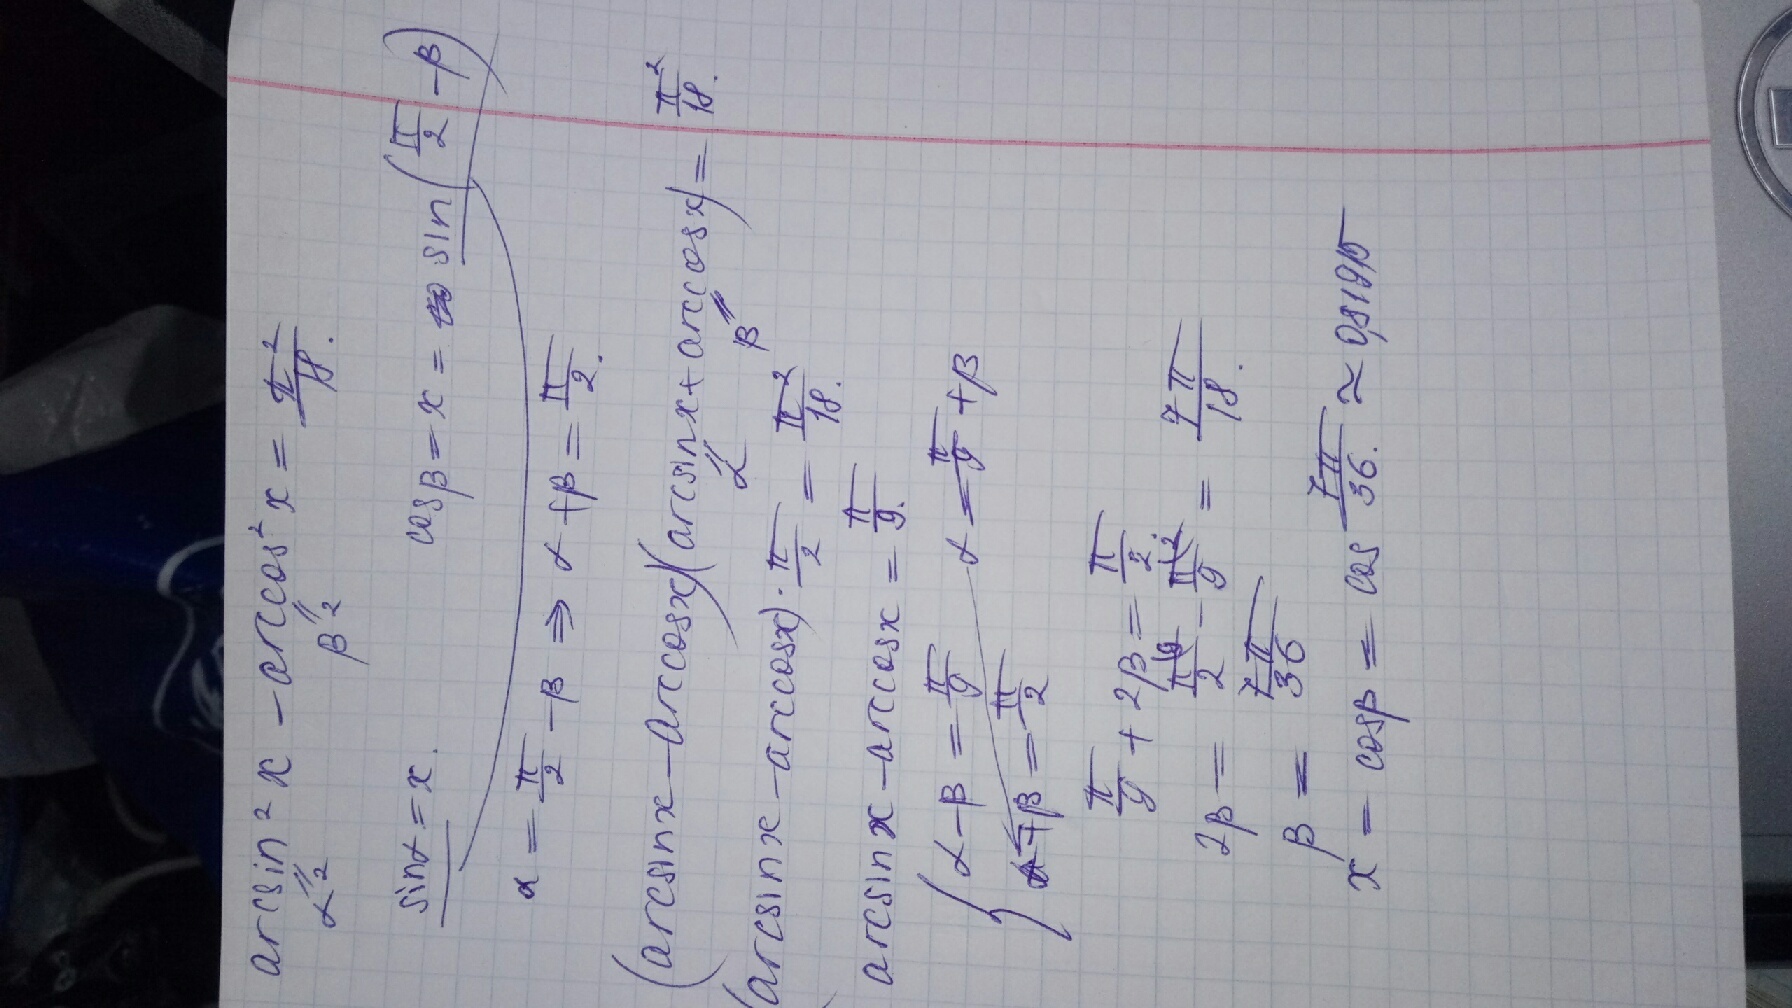 arcsin² x − arccos² x = π²/18.
α² β²
sinα = x. cosβ = x = sin(π/2 − β)
α = π/2 − β ⇒ α + β = π/2.
(arcsinx − arccosx)(arcsinx + arccosx) = π²/18.
α β
(arcsinx − arccosx) · π/2 = π²/18.
arcsinx − arccosx = π/9.
{ α − β = π/9 α = π/9 + β
α + β = π/2
π/9 + 2β = π/2
2β = π/2 − π/9 = 7π/18.
β = 7π/36
x = cosβ = cos 7π/36. ≈ 0,81915